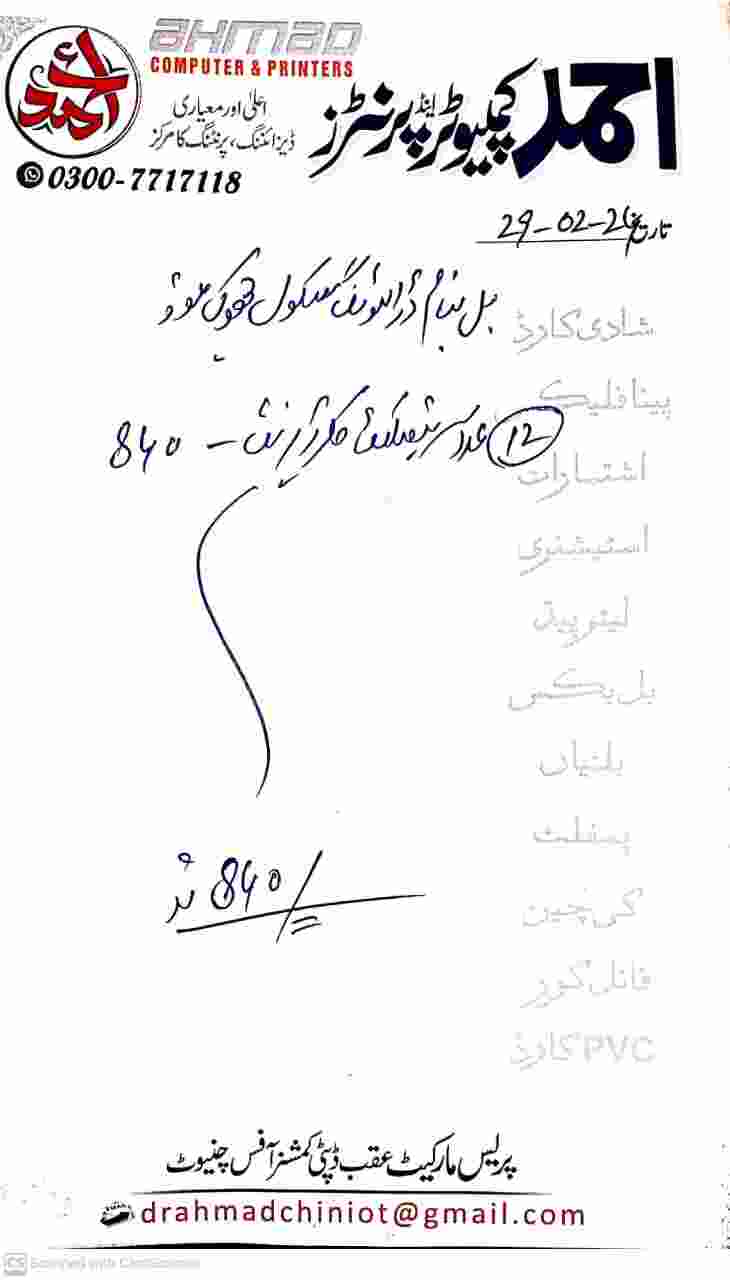 AHMAD
COMPUTER & PRINTERS
احمد کمپیوٹر اینڈ پرنٹرز
اعلیٰ اور معیاری
ڈیزائننگ، پرنٹنگ کا مرکز
0300-7717118
تاریخ 29-02-26
بل بنام ڈرائیونگ سکول
شادی کارڈ
پینا فلیکس
12 عدد سرٹیفکیٹ کلر پرنٹ - 840
اشتہارات
اسٹیشنری
لیٹر پیڈ
بل بکس
پمفلٹ
840/=
کی چین
فائل کور
PVC کارڈ
پریس مارکیٹ عقب ڈپٹی کمشنر آفس چنیوٹ
drahmadchiniot@gmail.com
CS Scanned with CamScanner